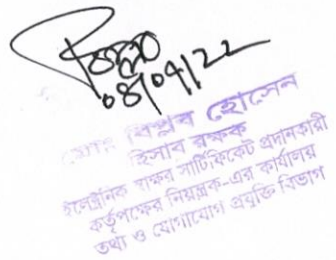 08/09/22
মোঃ বিপ্লব হোসেন
হিসাব রক্ষক
ইলেক্ট্রনিক স্বাক্ষর সার্টিফিকেট প্রদানকারী
কর্তৃপক্ষের নিয়ন্ত্রক-এর কার্যালয়
তথ্য ও যোগাযোগ প্রযুক্তি বিভাগ